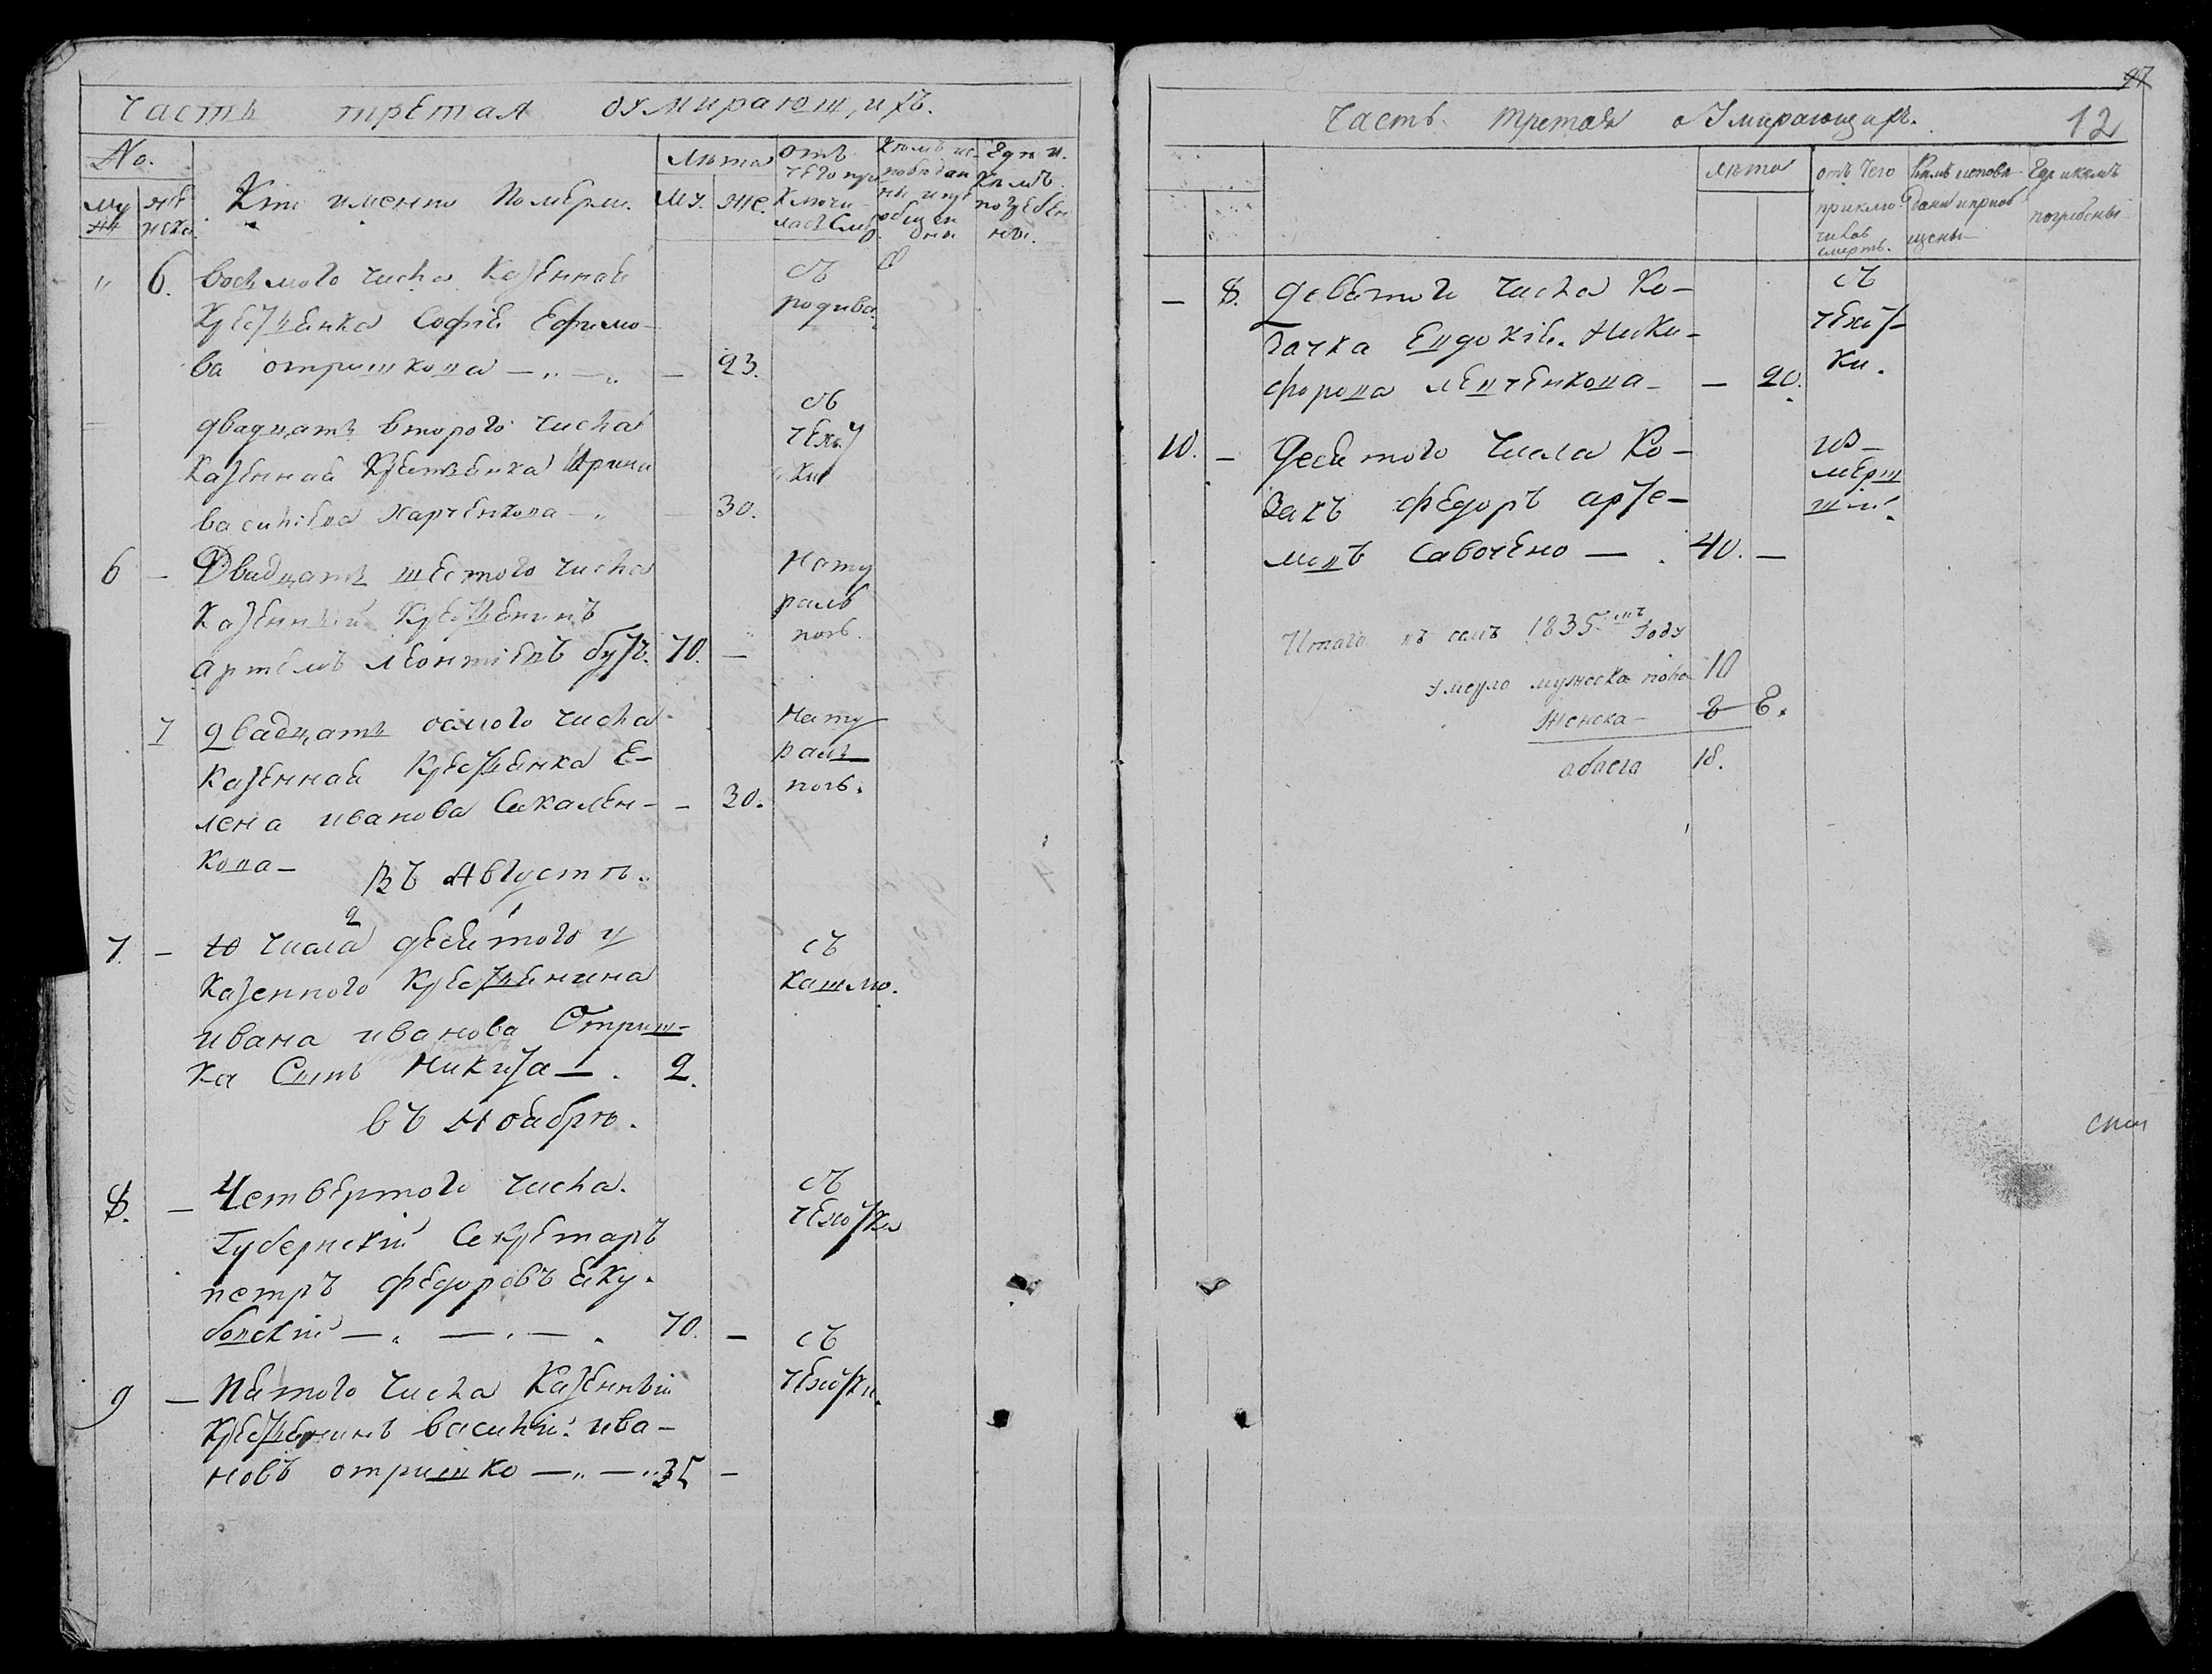 Часть третая оумирающихъ.
No.
му
жѣ
неска
Кто именно Померли.
Лѣта
му. же.
отъ
чего при
ключи
лась смер.
Кѣмъ ис-
повѣдан
ны и прі
общен
ны
Гдѣ и
Кѣмъ
погребен
ны.
" 6. Восьмого числа Казенная
Крестьянка Софія Ефимо-
ва отришкова — 23.
съ
родива.
двадцать второго числа
Казенная Крестьянка Ирина
василіева Харченкова — 30.
съ
чехут
ки
6 — Двадцать шестого числа
Казенный Крестьянинъ
артемъ леонтіевъ бутъ. 70. —
Нату
раль
ною.
7 двадцать осмого числа
Казенная Крестьянка Е-
лена иванова Сакален- — 30.
кова —
Нату
раль
ною.
Въ Августѣ.
7. — 10 числа десятого у
Казенного Крестьянина
ивана иванова Отриш-
ка Сынъ Никита — 2.
съ
кашлю.
въ Ноябрѣ.
8. — Четвертого числа.
Губернский Секретаръ
петръ федоровъ Яку-
бовский — 70. —
съ
чехотки
9 — Пятого числа Казенный
Крестьянинъ василій ива-
новъ отришко — 35 —
съ
чехотки.
97
Часть Третая о Умирающихъ. 12
лѣта
отъ чего
приклю-
чилась
смерть.
Кѣмъ исповѣ-
даны и приоб
щены
Гдѣ и кемъ
погребены
— 8. Девятого числа Ко-
зачка Евдокія Ники-
форова левченкова — — 20.
съ
чехот-
ки.
10. — Десятого числа Ко-
закъ федоръ арте-
мовъ Савочено — 40. —
из-
мерш
шій.
Итого въ семъ 1835мъ Году
умерло мужеска пола 10
Женска — 8 8.
обоего 18.